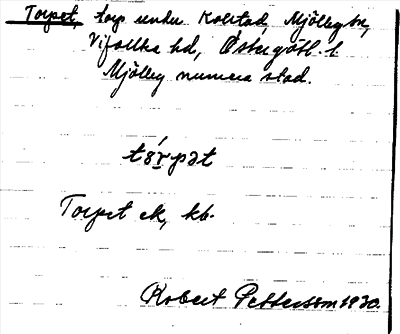 Torpet, torp under Kolstad, Mjölby sn,
Vifolka hd, Östergötl. l.
Mjölby numera stad.
Torpet ek, kb.
Robert Pettersson 1930.